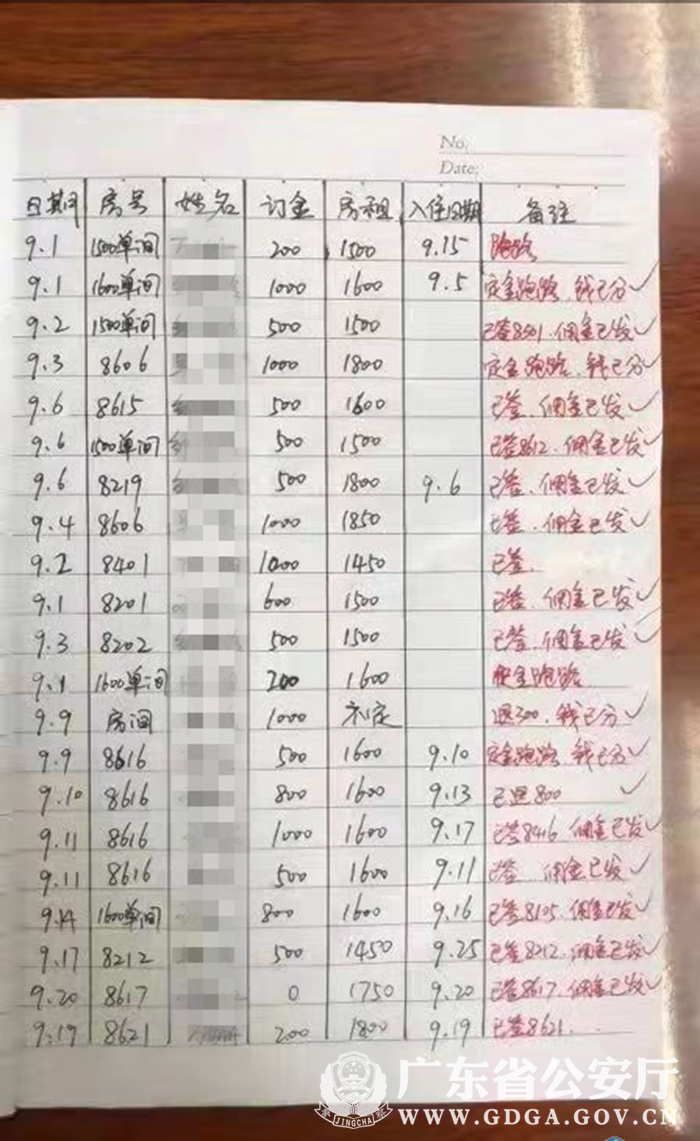 No.
Date:
日期 房号 姓名 订金 房租 入住日期 备注
9.1 1500单间 200 1500 9.15 跑路
9.1 1600单间 1000 1600 9.5 定金跑路.钱已分✓
9.2 1500单间 500 1500 已签8501.佣金已发✓
9.3 8606 1000 1800 定金跑路.钱已分✓
9.6 8615 500 1600 已签.佣金已发✓
9.6 1500单间 500 1500 已签8612.佣金已发✓
9.6 8219 500 1800 9.6 已签.佣金已发✓
9.4 8606 1000 1850 已签.佣金已发✓
9.2 8401 1000 1450 已签.
9.1 8201 600 1500 已签.佣金已发✓
9.3 8202 500 1500 已签.佣金已发✓
9.1 1600单间 200 1600 金跑路
9.9 房间 1000 不定 退300.钱已分✓
9.9 8616 500 1600 9.10 定金跑路.钱已分✓
9.10 8616 800 1600 9.13 已退800 ✓
9.11 8616 1000 1600 9.17 已签8416.佣金已发✓
9.11 8616 500 1600 9.11 已签 佣金已发✓
9.14 1600单间 800 1600 9.16 已签8105.佣金已发✓
9.17 8212 500 1450 9.25 已签8212.佣金已发✓
9.20 8617 0 1750 9.20 已签8617.佣金已发✓
9.19 8621 200 1800 9.19 已签8621.....
广东省公安厅
JINGCHA
WWW.GDGA.GOV.CN